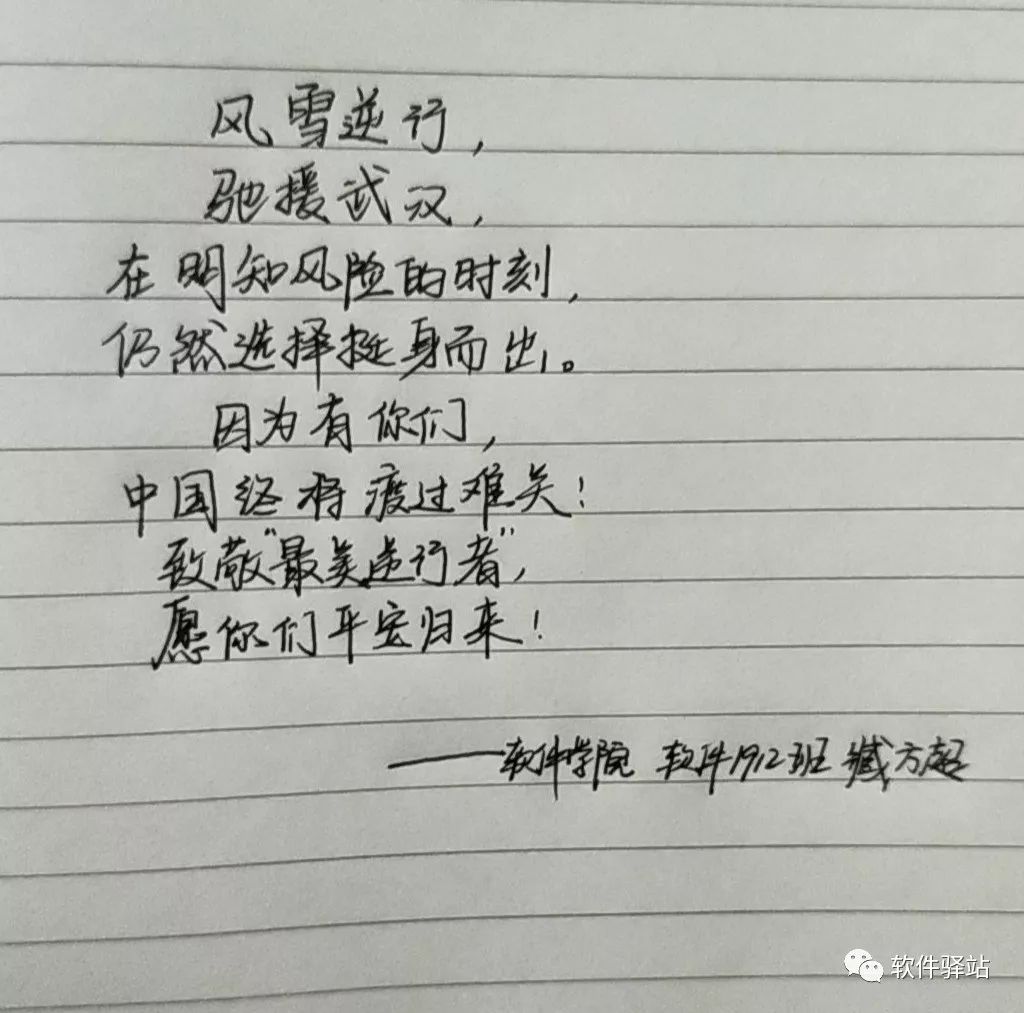 风雪逆行，
驰援武汉，
在明知风险的时刻，
仍然选择挺身而出。
因为有你们，
中国终将渡过难关！
致敬“最美逆行者”，
愿你们平安归来！
——软件学院 软件1912班 臧方超
软件驿站